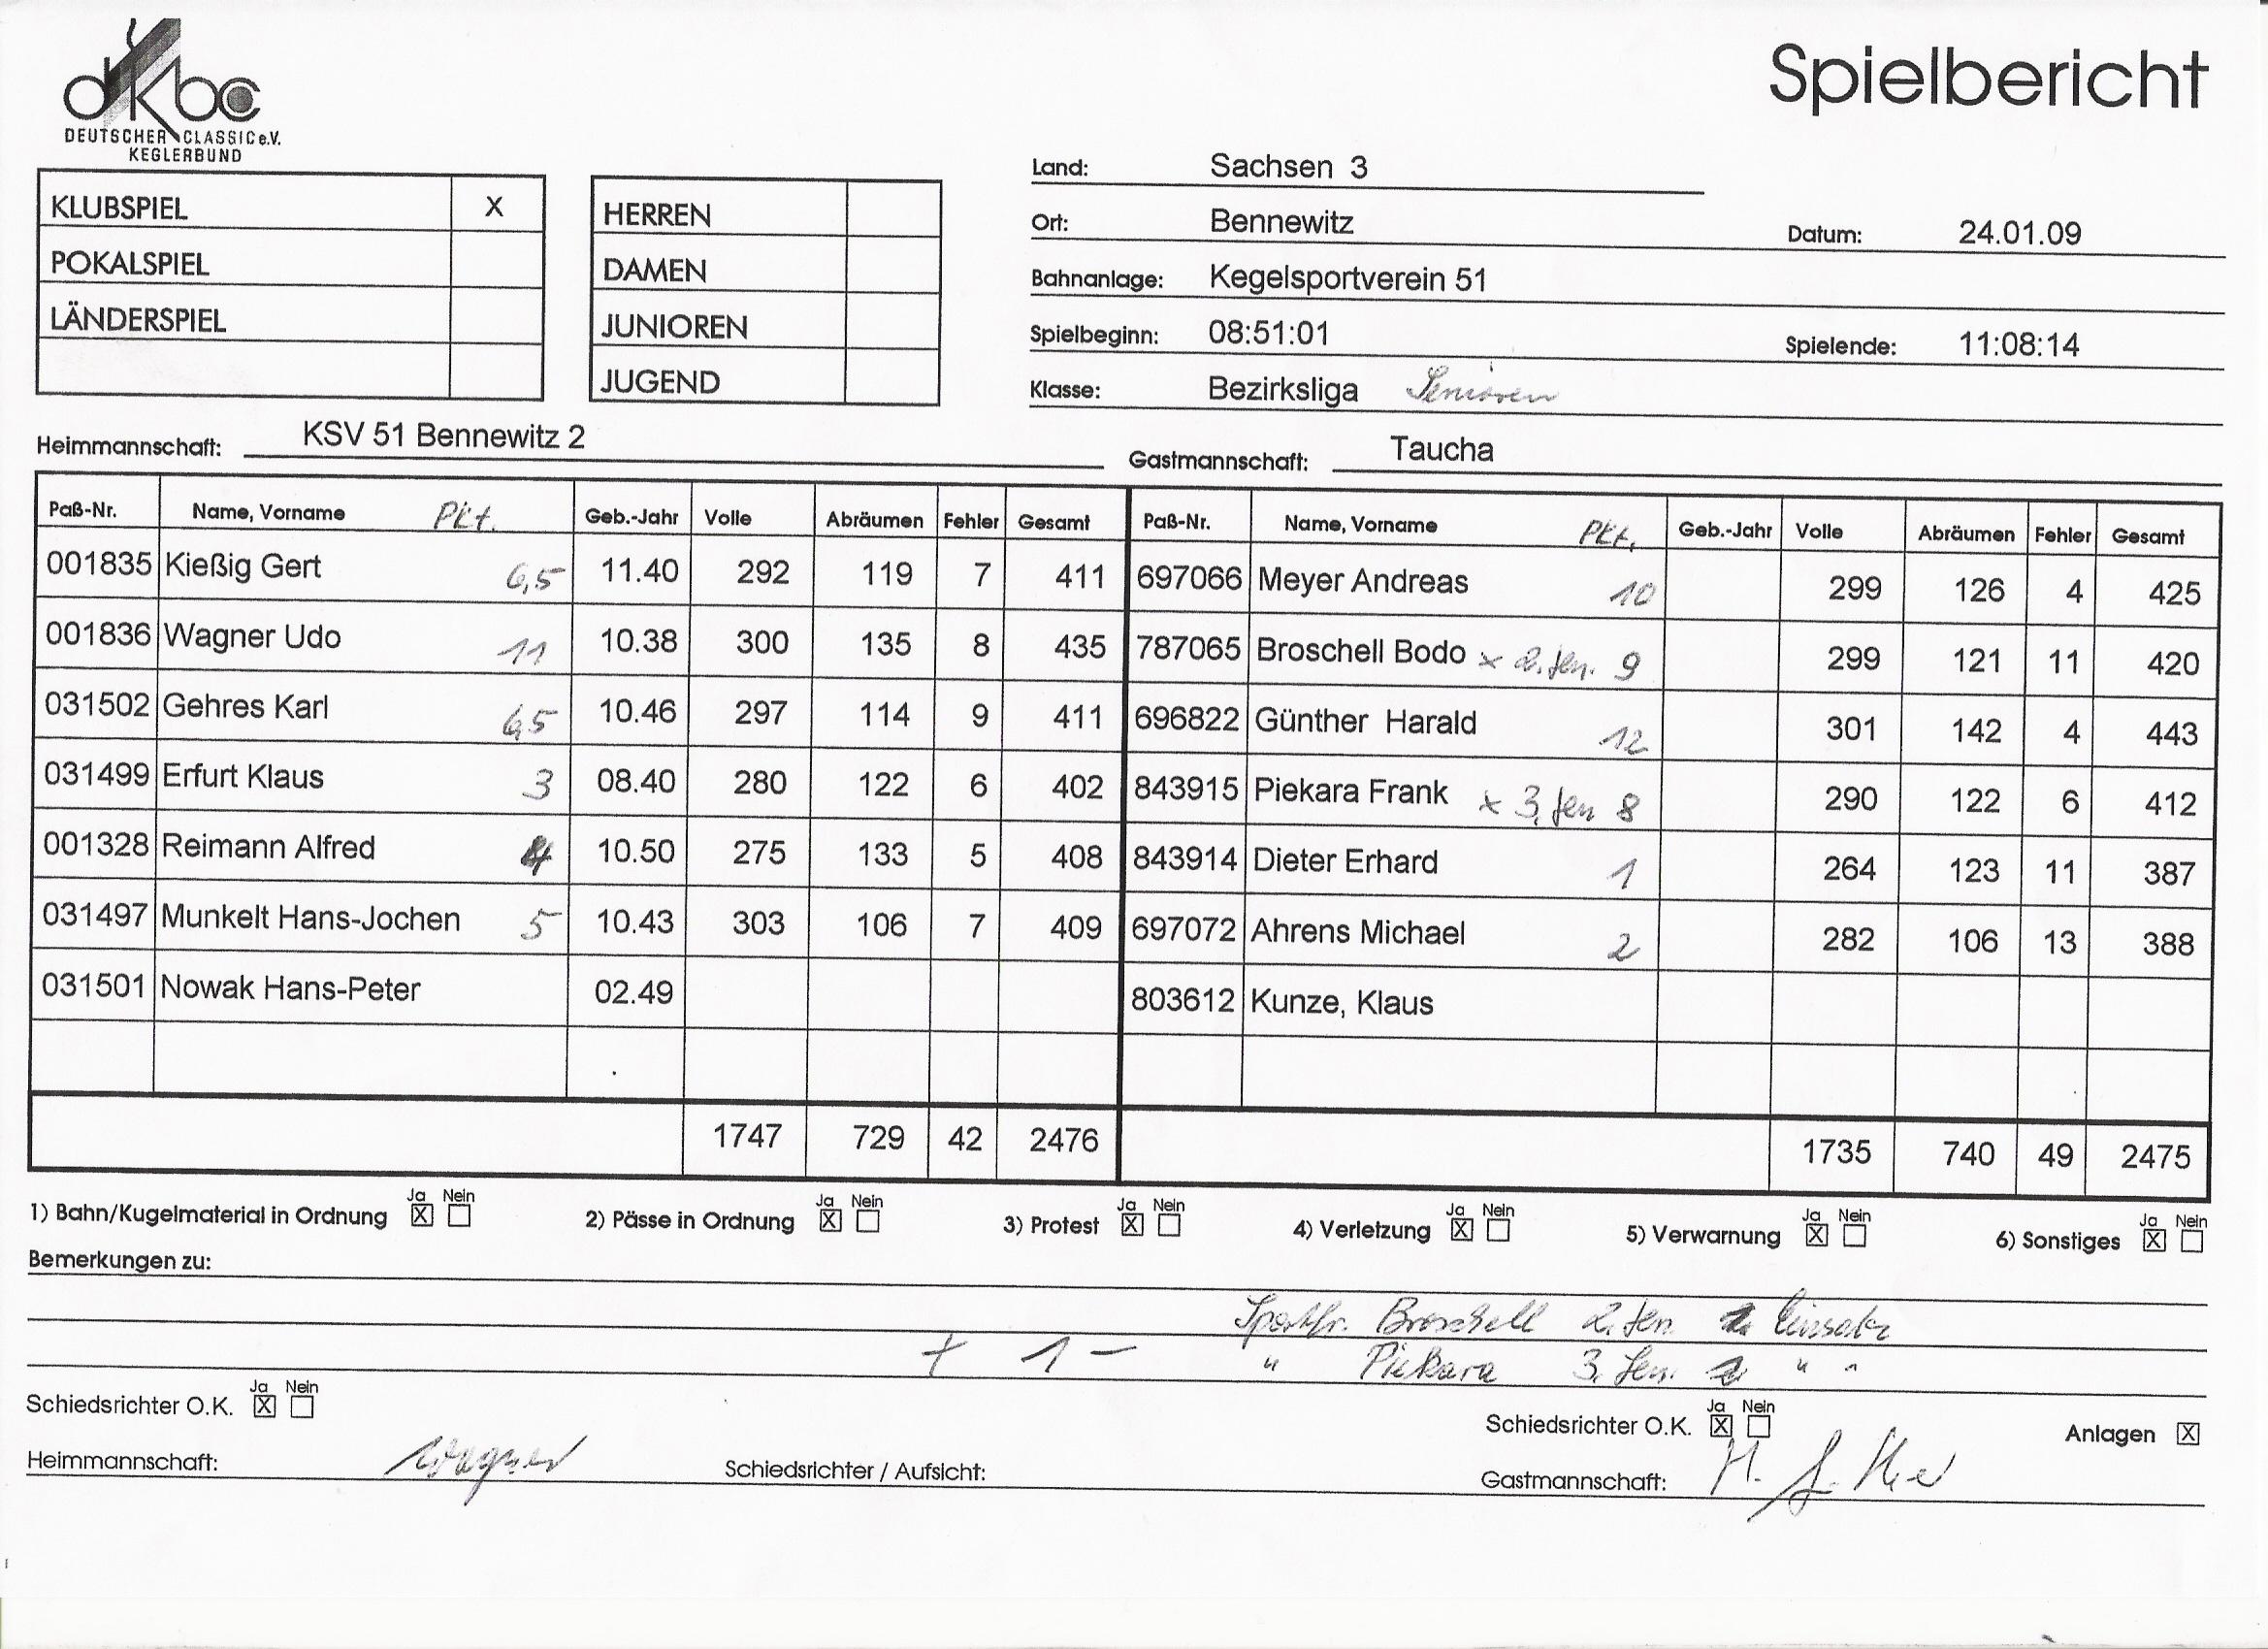 dkbc
DEUTSCHER CLASSIC e.V.
KEGLERBUND
Spielbericht
KLUBSPIEL X
POKALSPIEL
LÄNDERSPIEL
HERREN
DAMEN
JUNIOREN
JUGEND
Land: Sachsen 3
Ort: Bennewitz Datum: 24.01.09
Bahnanlage: Kegelsportverein 51
Spielbeginn: 08:51:01 Spielende: 11:08:14
Klasse: Bezirksliga Senioren
Heimmannschaft: KSV 51 Bennewitz 2 Gastmannschaft: Taucha
Paß-Nr. Name, Vorname Pkt. Geb.-Jahr Volle Abräumen Fehler Gesamt Paß-Nr. Name, Vorname Pkt. Geb.-Jahr Volle Abräumen Fehler Gesamt
001835 Kießig Gert 6,5 11.40 292 119 7 411 697066 Meyer Andreas 10 299 126 4 425
001836 Wagner Udo 11 10.38 300 135 8 435 787065 Broschell Bodo x 2. Sen. 9 299 121 11 420
031502 Gehres Karl 6,5 10.46 297 114 9 411 696822 Günther Harald 12 301 142 4 443
031499 Erfurt Klaus 3 08.40 280 122 6 402 843915 Piekara Frank x 3. Sen 8 290 122 6 412
001328 Reimann Alfred 4 10.50 275 133 5 408 843914 Dieter Erhard 1 264 123 11 387
031497 Munkelt Hans-Jochen 5 10.43 303 106 7 409 697072 Ahrens Michael 2 282 106 13 388
031501 Nowak Hans-Peter 02.49 803612 Kunze, Klaus
1747 729 42 2476 1735 740 49 2475
1) Bahn/Kugelmaterial in Ordnung Ja X Nein 2) Pässe in Ordnung Ja X Nein 3) Protest Ja X Nein 4) Verletzung Ja X Nein 5) Verwarnung Ja X Nein 6) Sonstiges Ja X Nein
Bemerkungen zu:
Sportfr. Broschell 2. Sen. Einsatz
+ 1 - " Piekara 3. Sen. " "
Schiedsrichter O.K. Ja X Nein Schiedsrichter O.K. Ja X Nein Anlagen X
Heimmannschaft: Wagner Schiedsrichter / Aufsicht: Gastmannschaft: